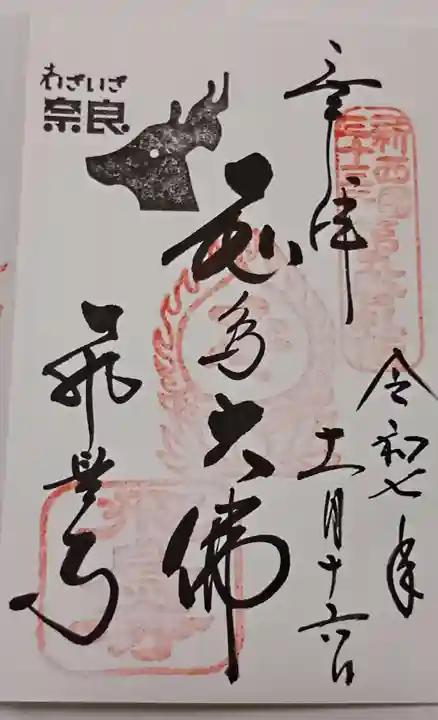 奉拝
新西国
三十三
令和七年
十一月十六日
飛鳥大佛
飛鳥寺
わざいざ
奈良